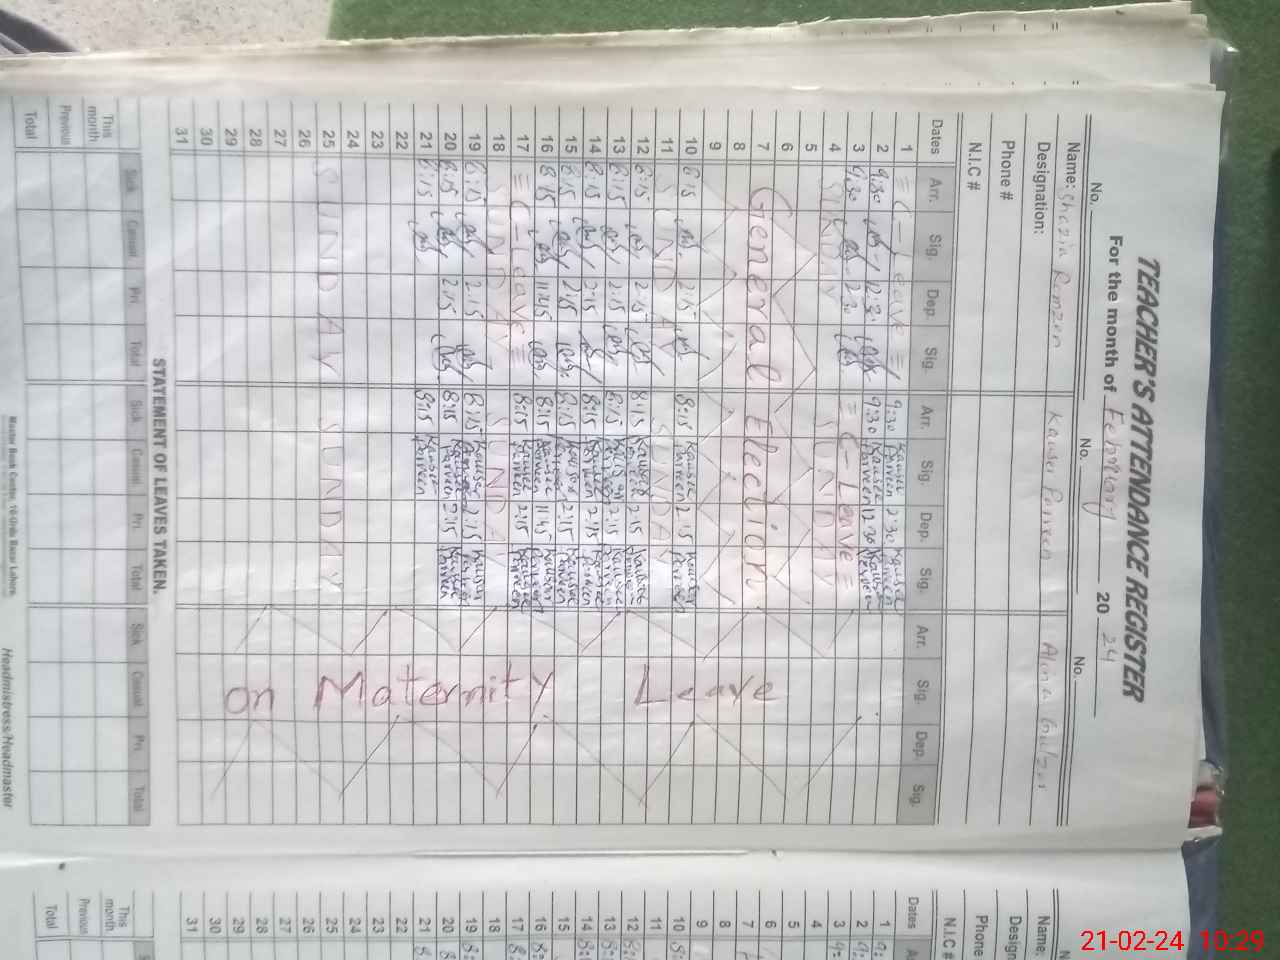 TEACHER'S ATTENDANCE REGISTER
For the month of February 20 24
No. No. No.
Name: Shazia Ramzan Kauser Parveen Alina Gulzar
Designation:
Phone #
N.I.C #
Dates Arr. Sig. Dep. Sig. Arr. Sig. Dep. Sig. Arr. Sig. Dep. Sig.
1 = C-Leave = 9:30 Kauser Parveen 2:30 Kauser Parveen
2 9:30 12:30 9:30 Kauser Parveen 12:30 Kauser Parveen
3 9:30 2:30 = C-Leave =
4 SUNDAY SUNDAY
5
6
7 General Election
8
9
10 8:15 2:15 8:15 Kauser Parveen 2:15 Kauser Parveen
11 SUNDAY SUNDAY
12 8:15 2:15 8:15 Kauser Parveen 2:15 Kauser Parveen
13 8:15 2:15 8:15 Kauser Parveen 2:15 Kauser Parveen
14 8:15 2:15 8:15 Kauser Parveen 2:15 Kauser Parveen
15 8:15 2:15 8:15 Kauser Parveen 2:15 Kauser Parveen
16 8:15 11:45 8:15 Kauser Parveen 11:45 Kauser Parveen
17 = C-Leave = 8:15 Kauser Parveen 2:15 Kauser Parveen
18 SUNDAY SUNDAY
19 8:15 2:15 8:15 Kauser Parveen 2:15 Kauser Parveen
20 8:15 2:15 8:15 Kauser Parveen 2:15 Kauser Parveen
21 8:15 8:15 Kauser Parveen
22
23
24
25 SUNDAY SUNDAY
26
27
28
29
30
31
on Maternity Leave
STATEMENT OF LEAVES TAKEN.
Sick Casual Pri Total Sick Casual Pri Total Sick Casual Pri Total
This month
Previous
Total
Headmistress/Headmaster
Name:
Design
Phone
N.I.C #
Dates
1
2
3
4
5
6
7
8
9
10
11
12
13
14
15
16
17
18
19
20
21
22
23
24
25
26
27
28
29
30
31
This month
Previous
Total
21-02-24 10:29